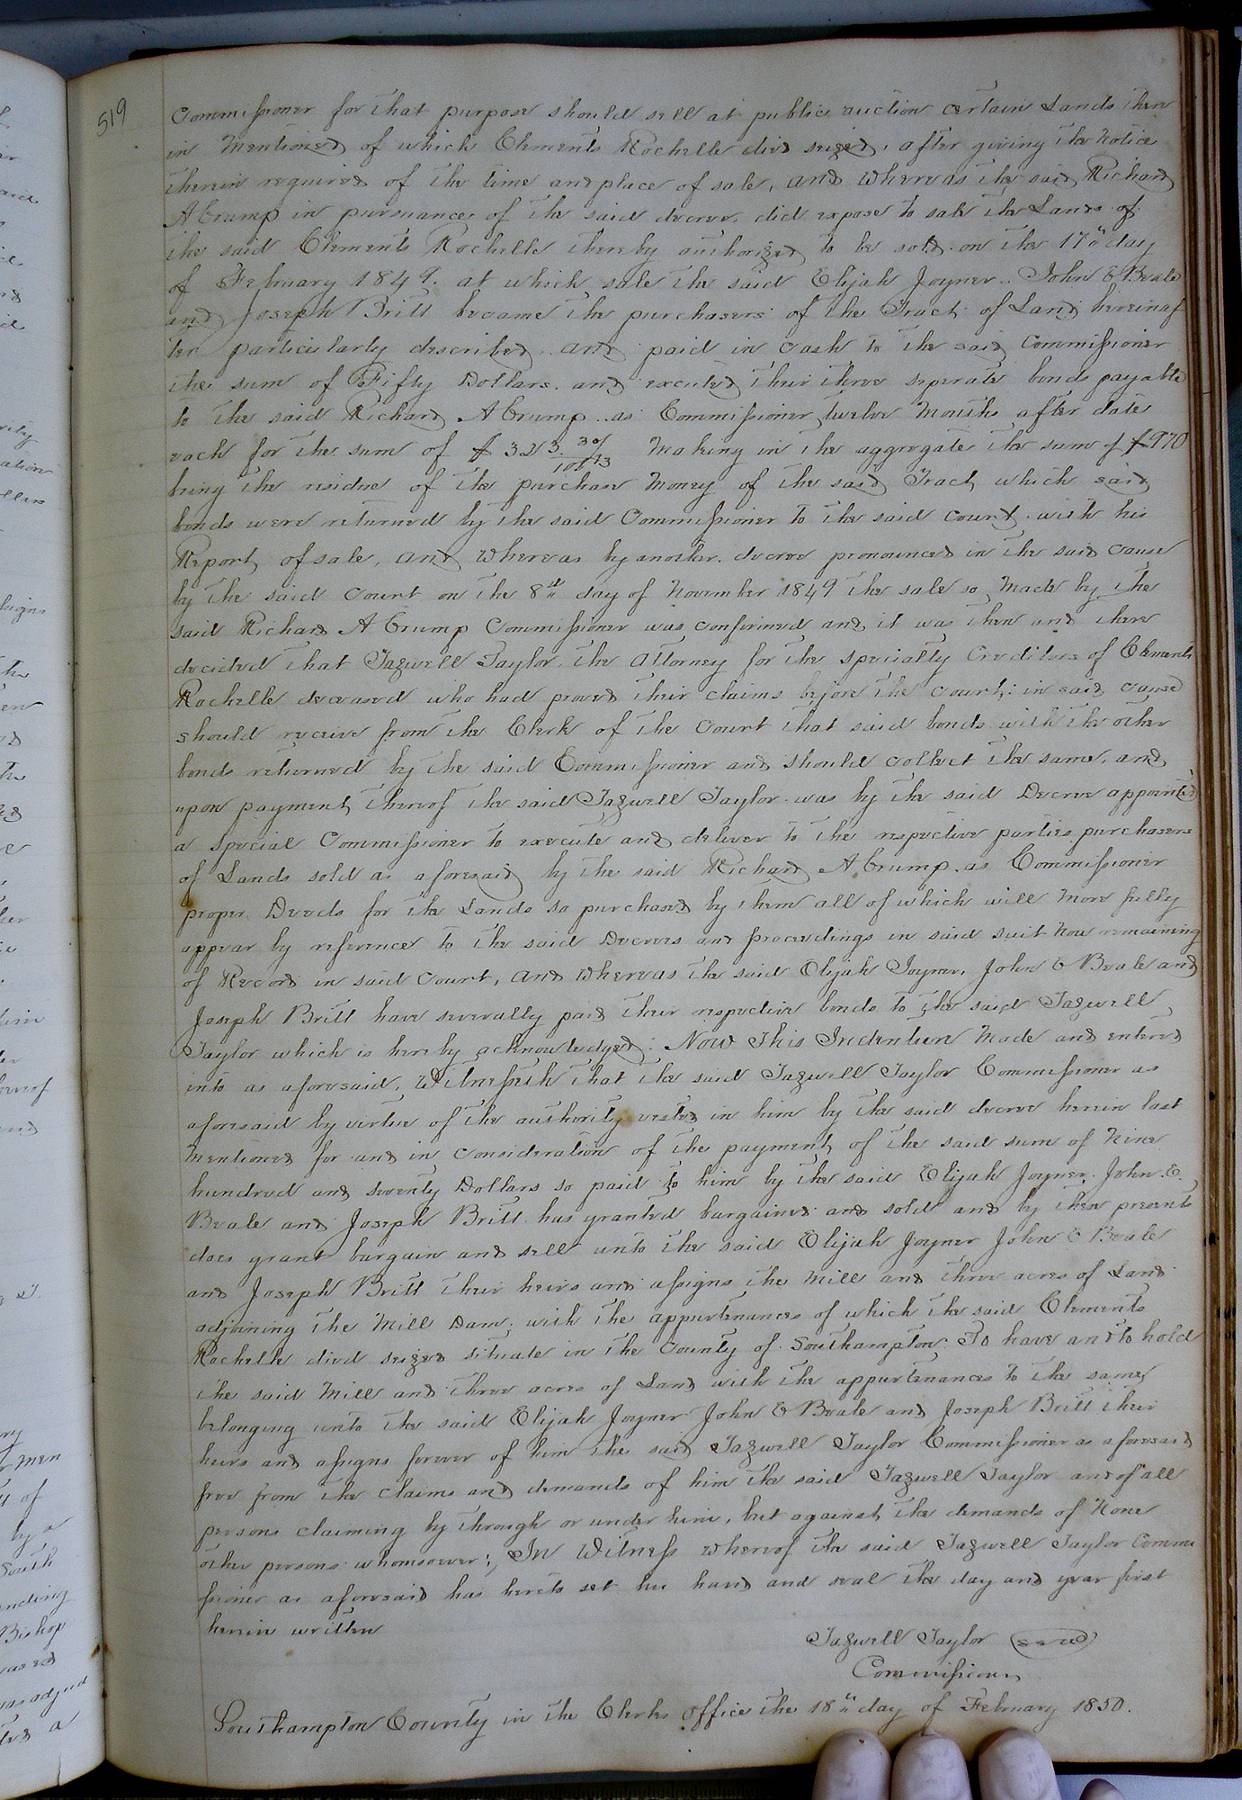 519
Commissioner for that purpose should sell at public auction certain Lands then
in Mentioned of which Clements Rochelle died seized, after giving the Notice
therein required of the time and place of sale, and whereas the said Richard
A Crump in pursuance of the said decree, did expose to sale the Lands of
the said Clements Rochelle thereby authorized to be sold on the 17th day
of February 1849. at which sale the said Elijah Joyner. John E Beale
and Joseph Britt became the purchasers of the Tract of Land hereinaf
ter particularly described and paid in cash to the said Commissioner
the sum of Fifty Dollars. and executed their three seperate bonds payable
to the said Richard A Crump as Commissioner, twelve Months after date
each for the sum of $ 323. Making in the aggregate the sum of $970
being the residue of the purchase Money of the said Tract, which said
bonds were returned by the said Commissioner to the said court with his
Report of sale, and whereas by another decree pronounced in the said cause
by the said Court on the 8th day of November 1849 the sale so Made by the
said Richard A Crump Commissioner was confirmed and it was then and there
decided that Tazwell Taylor, the Attorney for the specialty Creditors of Clements
Rochelle deceased who had proved their claims before the court in said cause
should receive from the Clerk of the Court that said bonds with the other
bonds returned by the said Commissioner and should collect the same, and
upon payment thereof the said Tazwell Taylor was by the said Decree appointed
a special Commissioner to execute and deliver to the respective parties purchasers
of Lands sold as aforesaid by the said Richard A Crump as Commissioner
proper Deeds for the Lands so purchased by them all of which will More fully
appear by reference to the said Decrees and proceedings in said suit Now remaining
of Record in said Court, and whereas the said Elijah Joyner, John E Beale and
Joseph Britt have severally paid their respective bonds to the said Tazwell
Taylor which is hereby acknowledged: Now This Indenture Made and entered
into as aforesaid, Witnesseth that the said Tazwell Taylor Commissioner as
aforesaid by virtue of the authority vested in him by the said decree herein last
Mentioned for and in consideration of the payment of the said sum of Nine
hundred and seventy Dollars so paid to him by the said Elijah Joyner, John E.
Beale and Joseph Britt has granted bargained and sold and by these presents
does grant bargain and sell unto the said Elijah Joyner John E Beale
and Joseph Britt their heirs and assigns the Mill and three acres of Land
adjoining the Mill Dam, with the appurtenances of which the said Clements
Rochelle died seized situate in the County of Southampton To have and to hold
the said Mill and three acres of Land with the appurtenances to the same
belonging unto the said Elijah Joyner John E Beale and Joseph Britt their
heirs and assigns forever of him the said Tazwell Taylor Commissioner as aforesaid
free from the claims and demands of him the said Tazwell Taylor and of all
persons claiming by through or under him, but against the demands of None
other persons whomsoever; In Witness whereof the said Tazwell Taylor Commi
ssioner as aforesaid has hereto set his hand and seal the day and year first
herein written
Tazwell Taylor (seal)
Commissioner
Southampton County in the Clerks office the 18th day of February 1850.